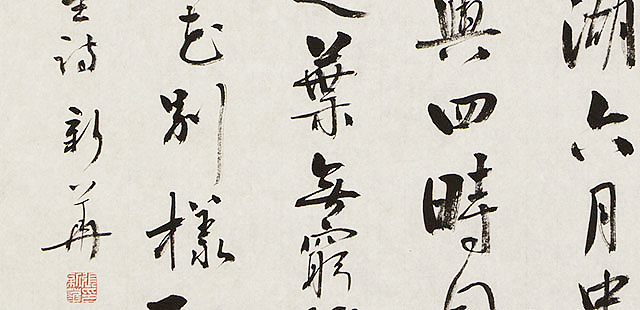 湖六月中
與四時同
葉無窮
花別樣
詩新華